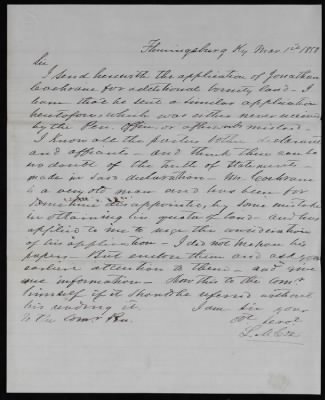 Flemingsburg Ky Mar. 1st 1858
Sir
I send herewith the application of Jonathan
Cochrane for additional bounty land - I
learn that he sent a similar application
heretofore which was either never received
by the Pen. Office or afterwards mislaid.
I know all the parties both declarant
and affiants - and think there can be
no doubt of the truth of statements
made in said declaration - Mr. Cochrane
is a very old man and has been for
sometime disappointed, by some mistake
in obtaining his quota of land - and has
applied to me to urge the consideration
of his application - I did not prepare his
papers - But enclose them and ask your
earliest attention to them - and give
me information - Show this to the Comr
himself if it should be refered without
his reading it. I am Sir your
Obt Servt
To the Comr Pen.